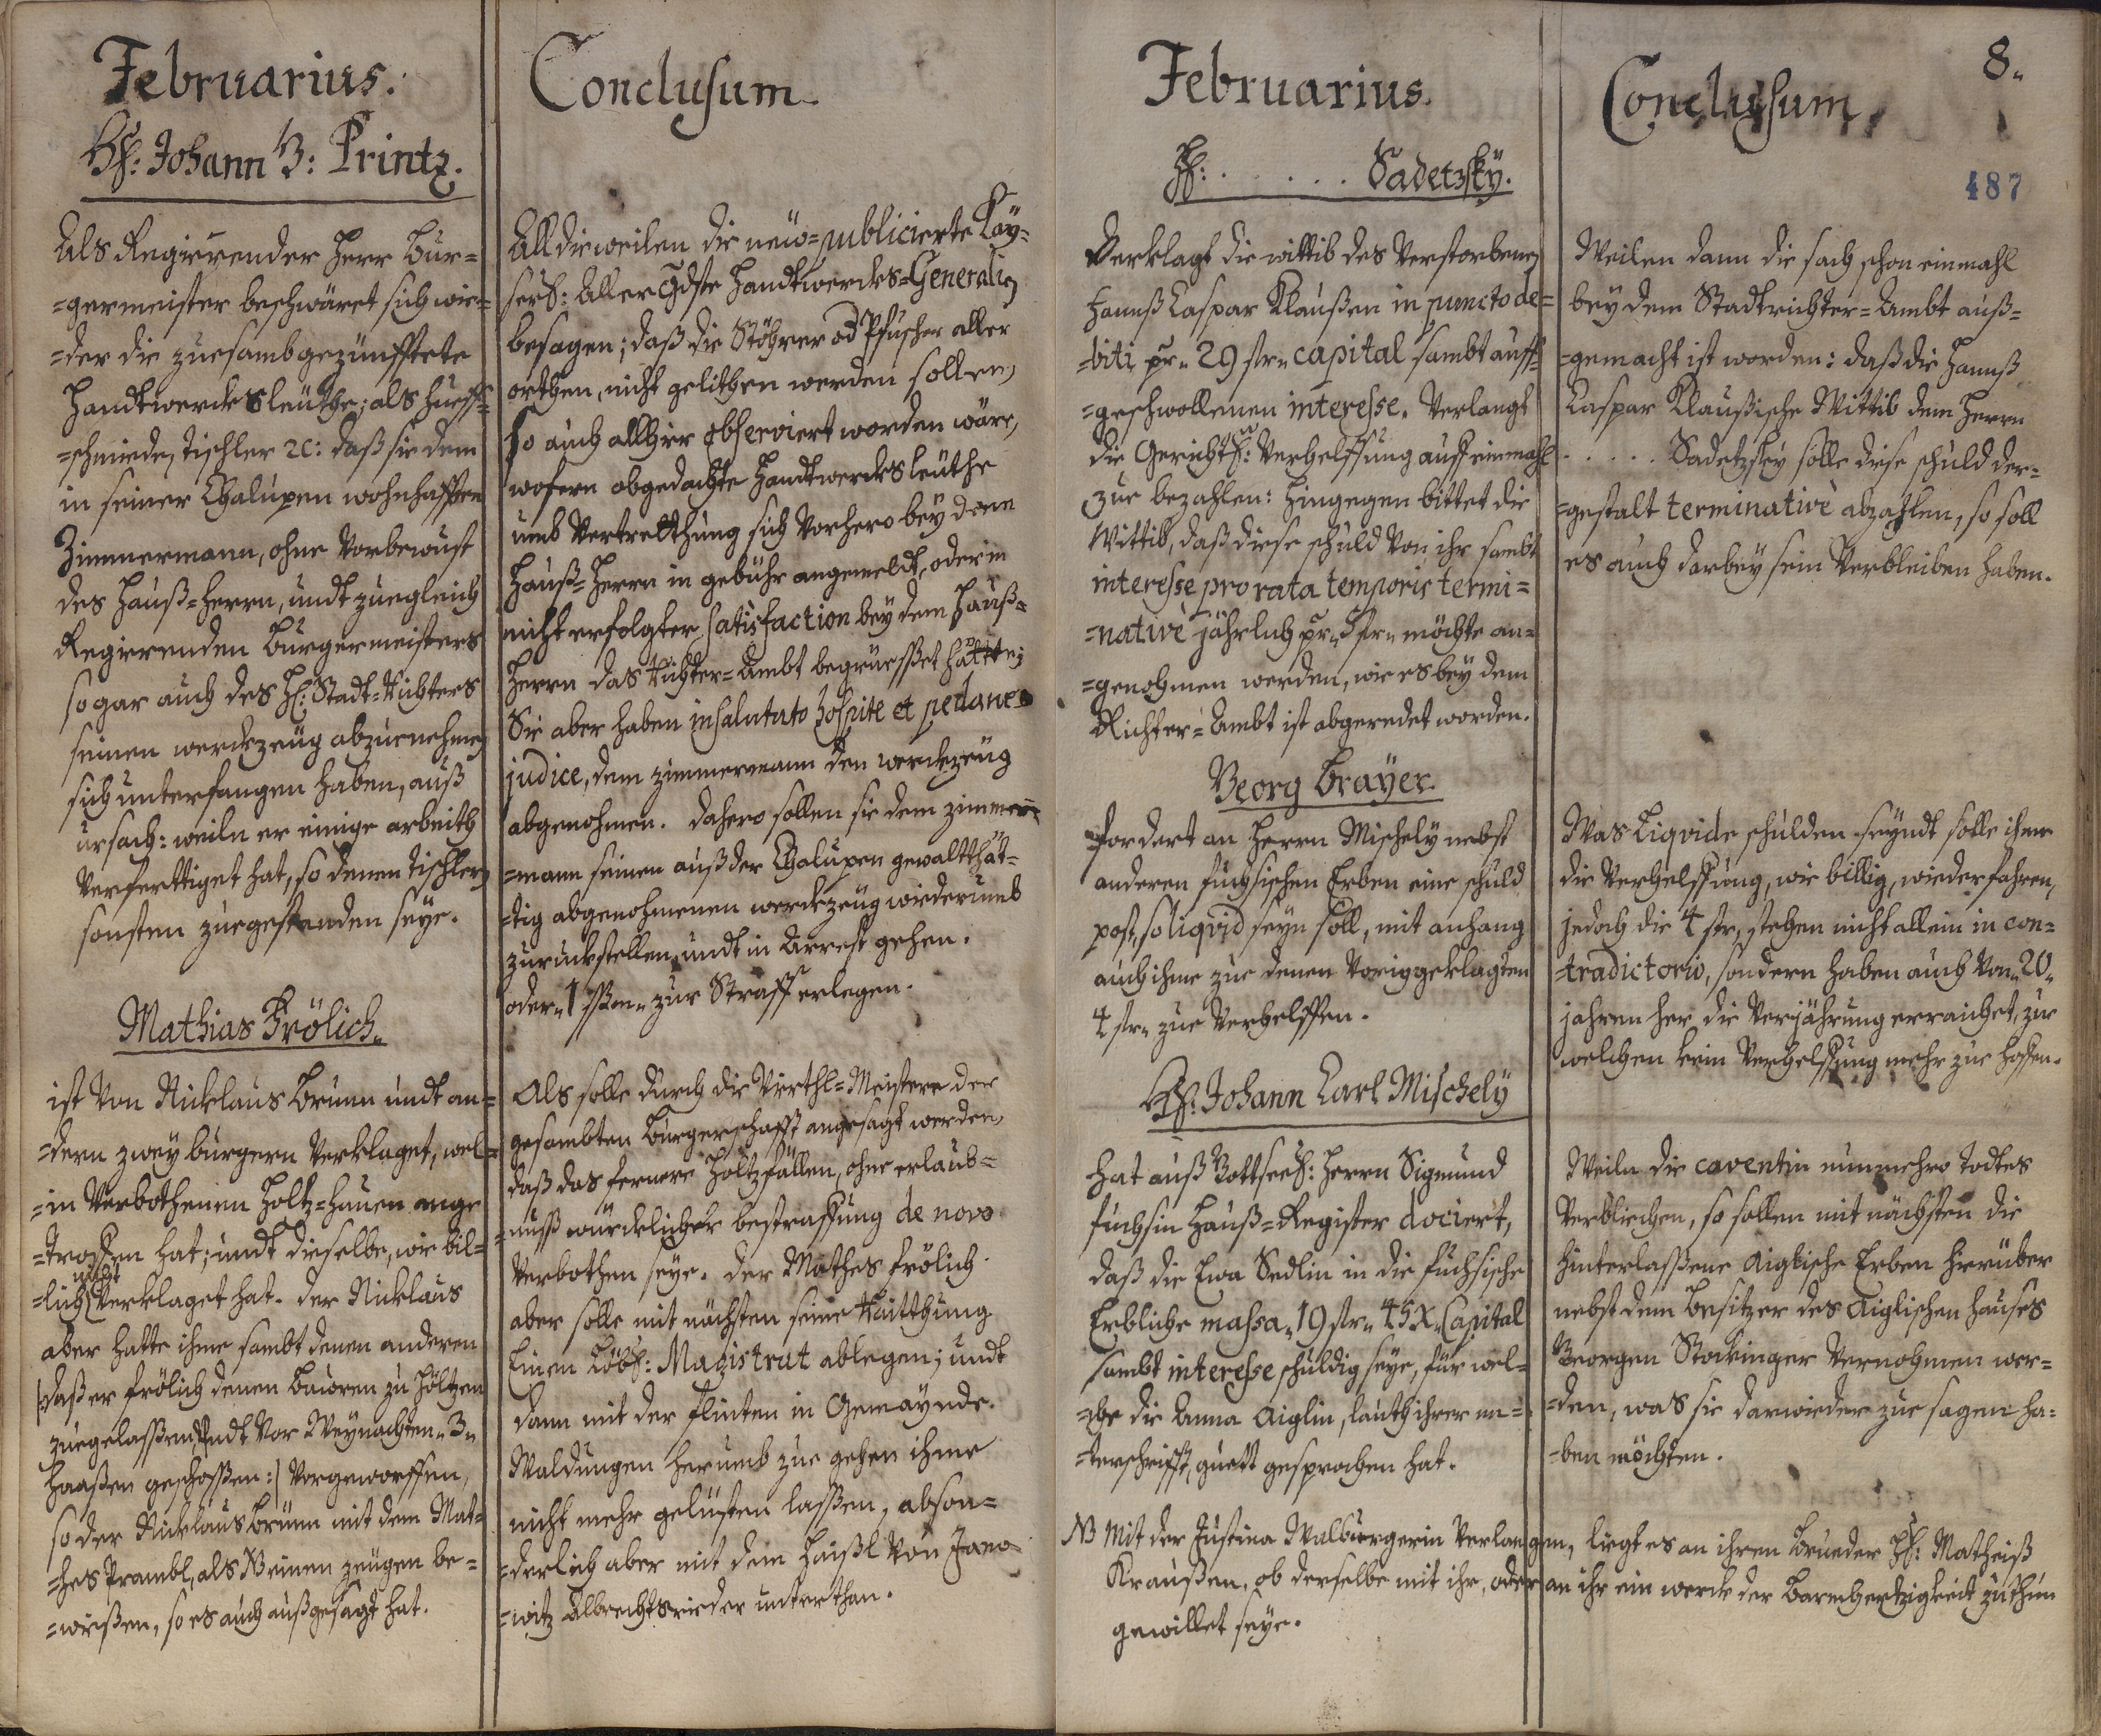 Februarius.
H: Johann B: Printz.
Als Regierender Herr Bur=
=germeister beschwäret sich wie=
=der die zuesambgezünfftete
Handtwerckhsleüthe; als Hueff=
=schmiede, Tischler ec: daß sie dem
in seiner Chalupen wohnhafften
Zimmermann, ohne Vorbewust
des Hauß=Herrn, undt zuegleich
Regierenden Burgermeisters
sogar auch des H: Stadt=Richters
seinen werckzeüg abzuenehmen
sich unterfangen haben, auß
ursach: weiln er einige arbeith
Verferttiget hat, so denen Tischlern
sonsten zuegestanden seye.
Mathias Frölich.
ist Von Nicklaus Brunn undt an=
=dern zwey burgern Verklaget, wel=
=in Verbothenen Holtz=hauen ange
=troffen hat; undt dieselbe, wie bil=
nicht
=lich Verklaget hat. Der Nicklaus
aber hatte ihme sambt denen anderen
daß er Frölich denen Bauren zu höltzen
zuegelassen, undt Vor Weynachten 3
Haaßen geschossen:| Vorgeworffen,
so der Nicklaus Brunn mit dem Mat=
=hes Prambl, als Neinen zeügen be=
=wießen, so es auch außgesagt hat.
Conclusum.
Alldieweilen die neüo=publicierte Kay=
serl: Allergdste Handtwerckhs=Generalien
besagen; daß die Stöhrer od Pfuscher aller
orthen, nicht gelithen werden sollen,
so auch allhier observiert worden wäre,
wofern obgedachte Handtwerckhsleüthe
umb Vertretthung sich Vorhero bey dem
Hauß=Herrn in gebühr angemeldt, oder in
nicht erfolgter satisfaction bey dem Hauß=
Herrn das Richter=Ambt begrüesset hätten;
Sie aber haben insalutato hospite et pedaneo
judice, dem zimmermann den werckzeüg
abgenohmen. Dahero sollen sie dem zimmer=
=mann seinen auß der Chalupen gewaltthät=
=tig abgenohmenen werckzeüg wiederumb
zuruckstellen, undt in Arrest gehen.
oder 1 ßßen zur Straff erlegen.
Als solle durch die Virthl=Meistere der
gesambten Burgerschafft angesagt werden,
daß das fernere Holtzfällen, ohne erlaub=
=nuß würcklicher bestraffung de novo
Verbothen seye. Der Mathes Frölich
aber solle mit nächsten seine Raitthung
Einem Löbl: Magistrat ablegen; undt
dann mit der flinten in Gemaynde.
Waldungen herumb zue gehen ihme
nicht mehr gelüsten lassen, abson=
=derlich aber mit dem Haißl von Jano
=witz Albrechtsrieder unterthan.
Februarius.
H: . . . . . Sadetzky.
Verklagt die wittib des Verstorbenen
Hannß Caspar Klaußen in puncto de=
=biti pr 29 fl capital sambt auff=
=geschwollenen interesse. Verlangt
die Gerichtl: Verhelffung auff einmahl
zue bezahlen: Hingegen bittet die
Wittib, daß diese schuld Von ihr sambt
interesse pro rata temporis termi=
=nativè jährlich pr 5 fl möchte an=
=genohmen werden, wie es bey dem
Richter=Ambt ist abgeredet worden.
Georg Brayer.
fordert an Herrn Mischely nebst
anderen fuchsischen Erben eine schuld
post, so liqvid seyn soll, mit anhang
auch ihme zue denen Voriggeklagten
4 fl zue Verhelffen.
H: Johann Carl Mischelÿ
hat auß Gottseel: Herrn Sigmund
fuchsin Hauß=Register dociert,
daß die Ewa Sedlin in die fuchsische
Erbliche massa 19 fl 45 X Capital
sambt interesse schuldig seye, für wel=
=che die Anna Aiglin, lauth ihrer un=
=terschrifft, guett gesprochen hat.
NB Mit der Justina Walburgerin Verlangen, liegt es an ihren Brueder H: Matheiß
Kraußen, ob derselbe mit ihr, oder an ihr ein werck der Barmhertzigkeit zuthun
gewillet seye.
Conclusum
8.
487
Weilen dann die sach schon einmahl
bey dem Stadtrichter=Ambt auß=
=gemacht ist worden: daß die Hannß
Caspar Klaußische Wittib dem Herrn
. . . . . Sadetzky solle diese schuld der=
=gestalt terminativè abzahlen, so soll
es auch darbey sein Verbleiben haben.
Was Liqvide schulden seyndt solle ihme
die Verhelffung, wie billig, wiederfahren,
jedoch die 4 fl, stehen nicht allein in con=
=tradictorio, sondern haben auch Von 20
jahren her die Verjährung erraichet, zue
welchen kein Verhelffung mehr zue hoffen.
Weiln die caventin nunmehro todtes
Verbliechen, so sollen mit nächsten die
hinterlassene Aiglische Erben hierüber
nebst dem Besitzer des Aiglischen Hauses
Georgen Stockinger Vernohmen wer=
=den, was sie darwieder zue sagen ha=
=ben möchten.